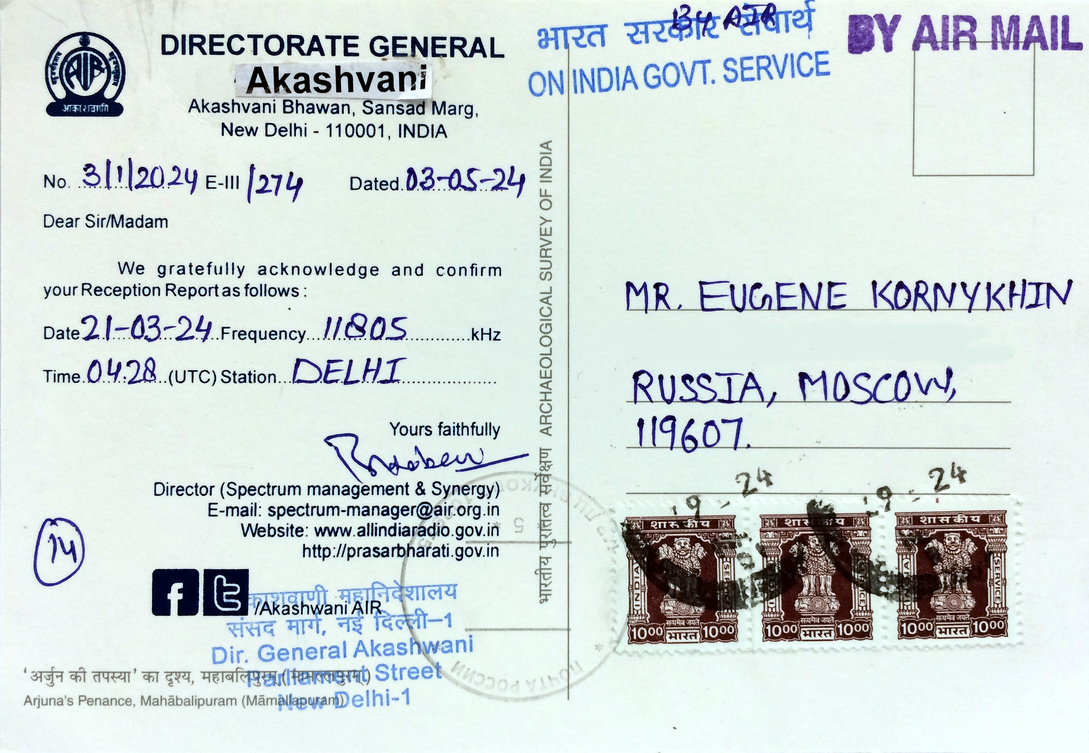 AIR
आकाशवाणी
DIRECTORATE GENERAL
Akashvani
Akashvani Bhawan, Sansad Marg,
New Delhi - 110001, INDIA
No. 3/1/2024 E-III /274 Dated. 03-05-24
Dear Sir/Madam
We gratefully acknowledge and confirm
your Reception Report as follows :
Date 21-03-24 Frequency 11805 kHz
Time 04.28 (UTC) Station DELHI
Yours faithfully
Director (Spectrum management & Synergy)
E-mail: spectrum-manager@air.org.in
Website: www.allindiaradio.gov.in
http://prasarbharati.gov.in
14
f t /Akashwani AIR
काशवाणी महानिदेशालय
संसद मार्ग, नई दिल्ली-1
Dir. General Akashwani
Parliament Street
New Delhi-1
'अर्जुन की तपस्या' का दृश्य, महाबलिपुरम् (मामल्लपुरम्)
Arjuna's Penance, Mahābalipuram (Māmallapuram)
भारतीय पुरातत्व सर्वेक्षण ARCHAEOLOGICAL SURVEY OF INDIA
भारत सरकार सेवार्थ
BY AIR
ON INDIA GOVT. SERVICE
BY AIR MAIL
MR. EUGENE KORNYKHIN
RUSSIA, MOSCOW,
119607.
9 24
9 - 24
शासकीय शासकीय शासकीय
INDIA SERVICE
सत्यमेव जयते सत्यमेव जयते सत्यमेव जयते
1000 भारत 1000 1000 भारत 1000 1000 भारत 1000
ПОЧТА РОССИИ